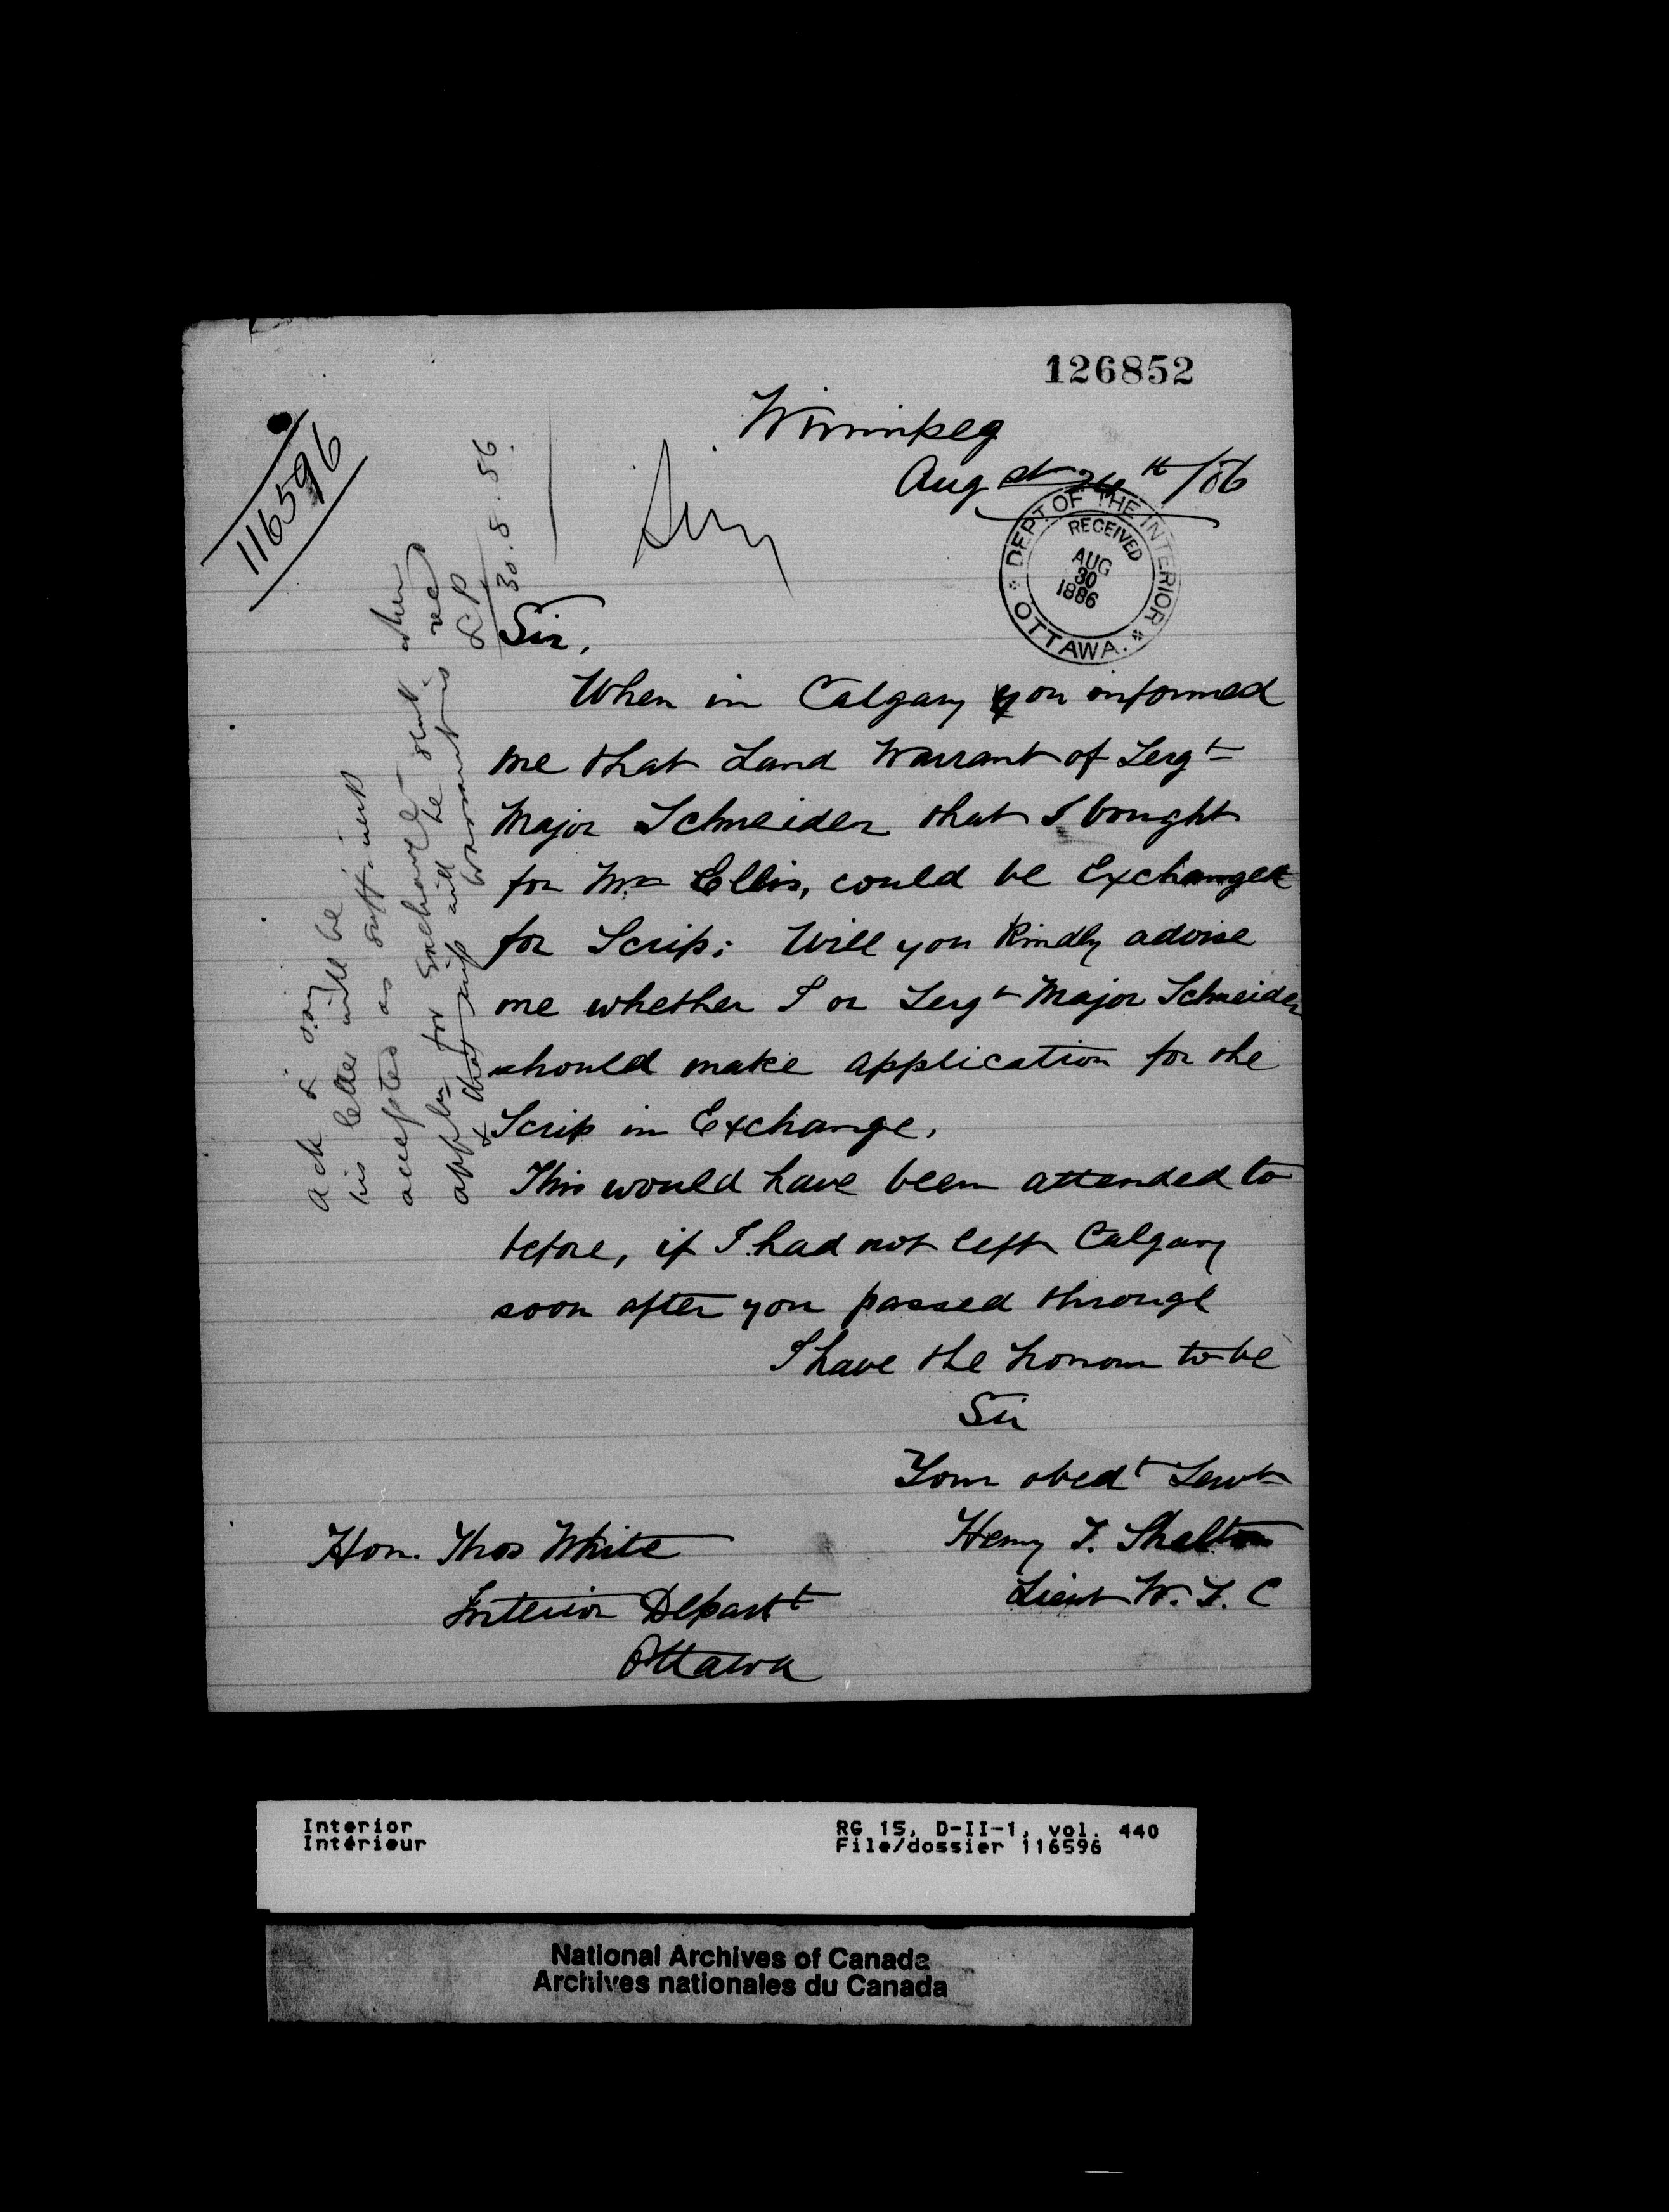 126852
116596
Winnipeg
Augst 24th/86
DEPT OF THE INTERIOR
RECEIVED
AUG
30
1886
OTTAWA.
Sir,
When in Calgary you informed
me that Land Warrant of Sergt
Major Schneider that I bought
for Mr Ellis, could be Exchanged
for Scrip; Will you Kindly advise
me whether I or Sergt Major Schneider
should make application for the
Scrip in Exchange.
This would have been attended to
before, if I had not left Calgary
soon after you passed through
I have the honour to be
Sir
Your obedt Servt
Henry T. Shelton
Lieut W. L. C
Hon. Thos White
Interior Departt
Ottawa
Ack & say
his letter will be
accepted as sufft
appln for Exchange
& that scrip will be sent when
warrant is recd
30.8.86.
Interior
Intérieur
RG 15, D-II-1, vol. 440
File/dossier 116596
National Archives of Canada
Archives nationales du Canada